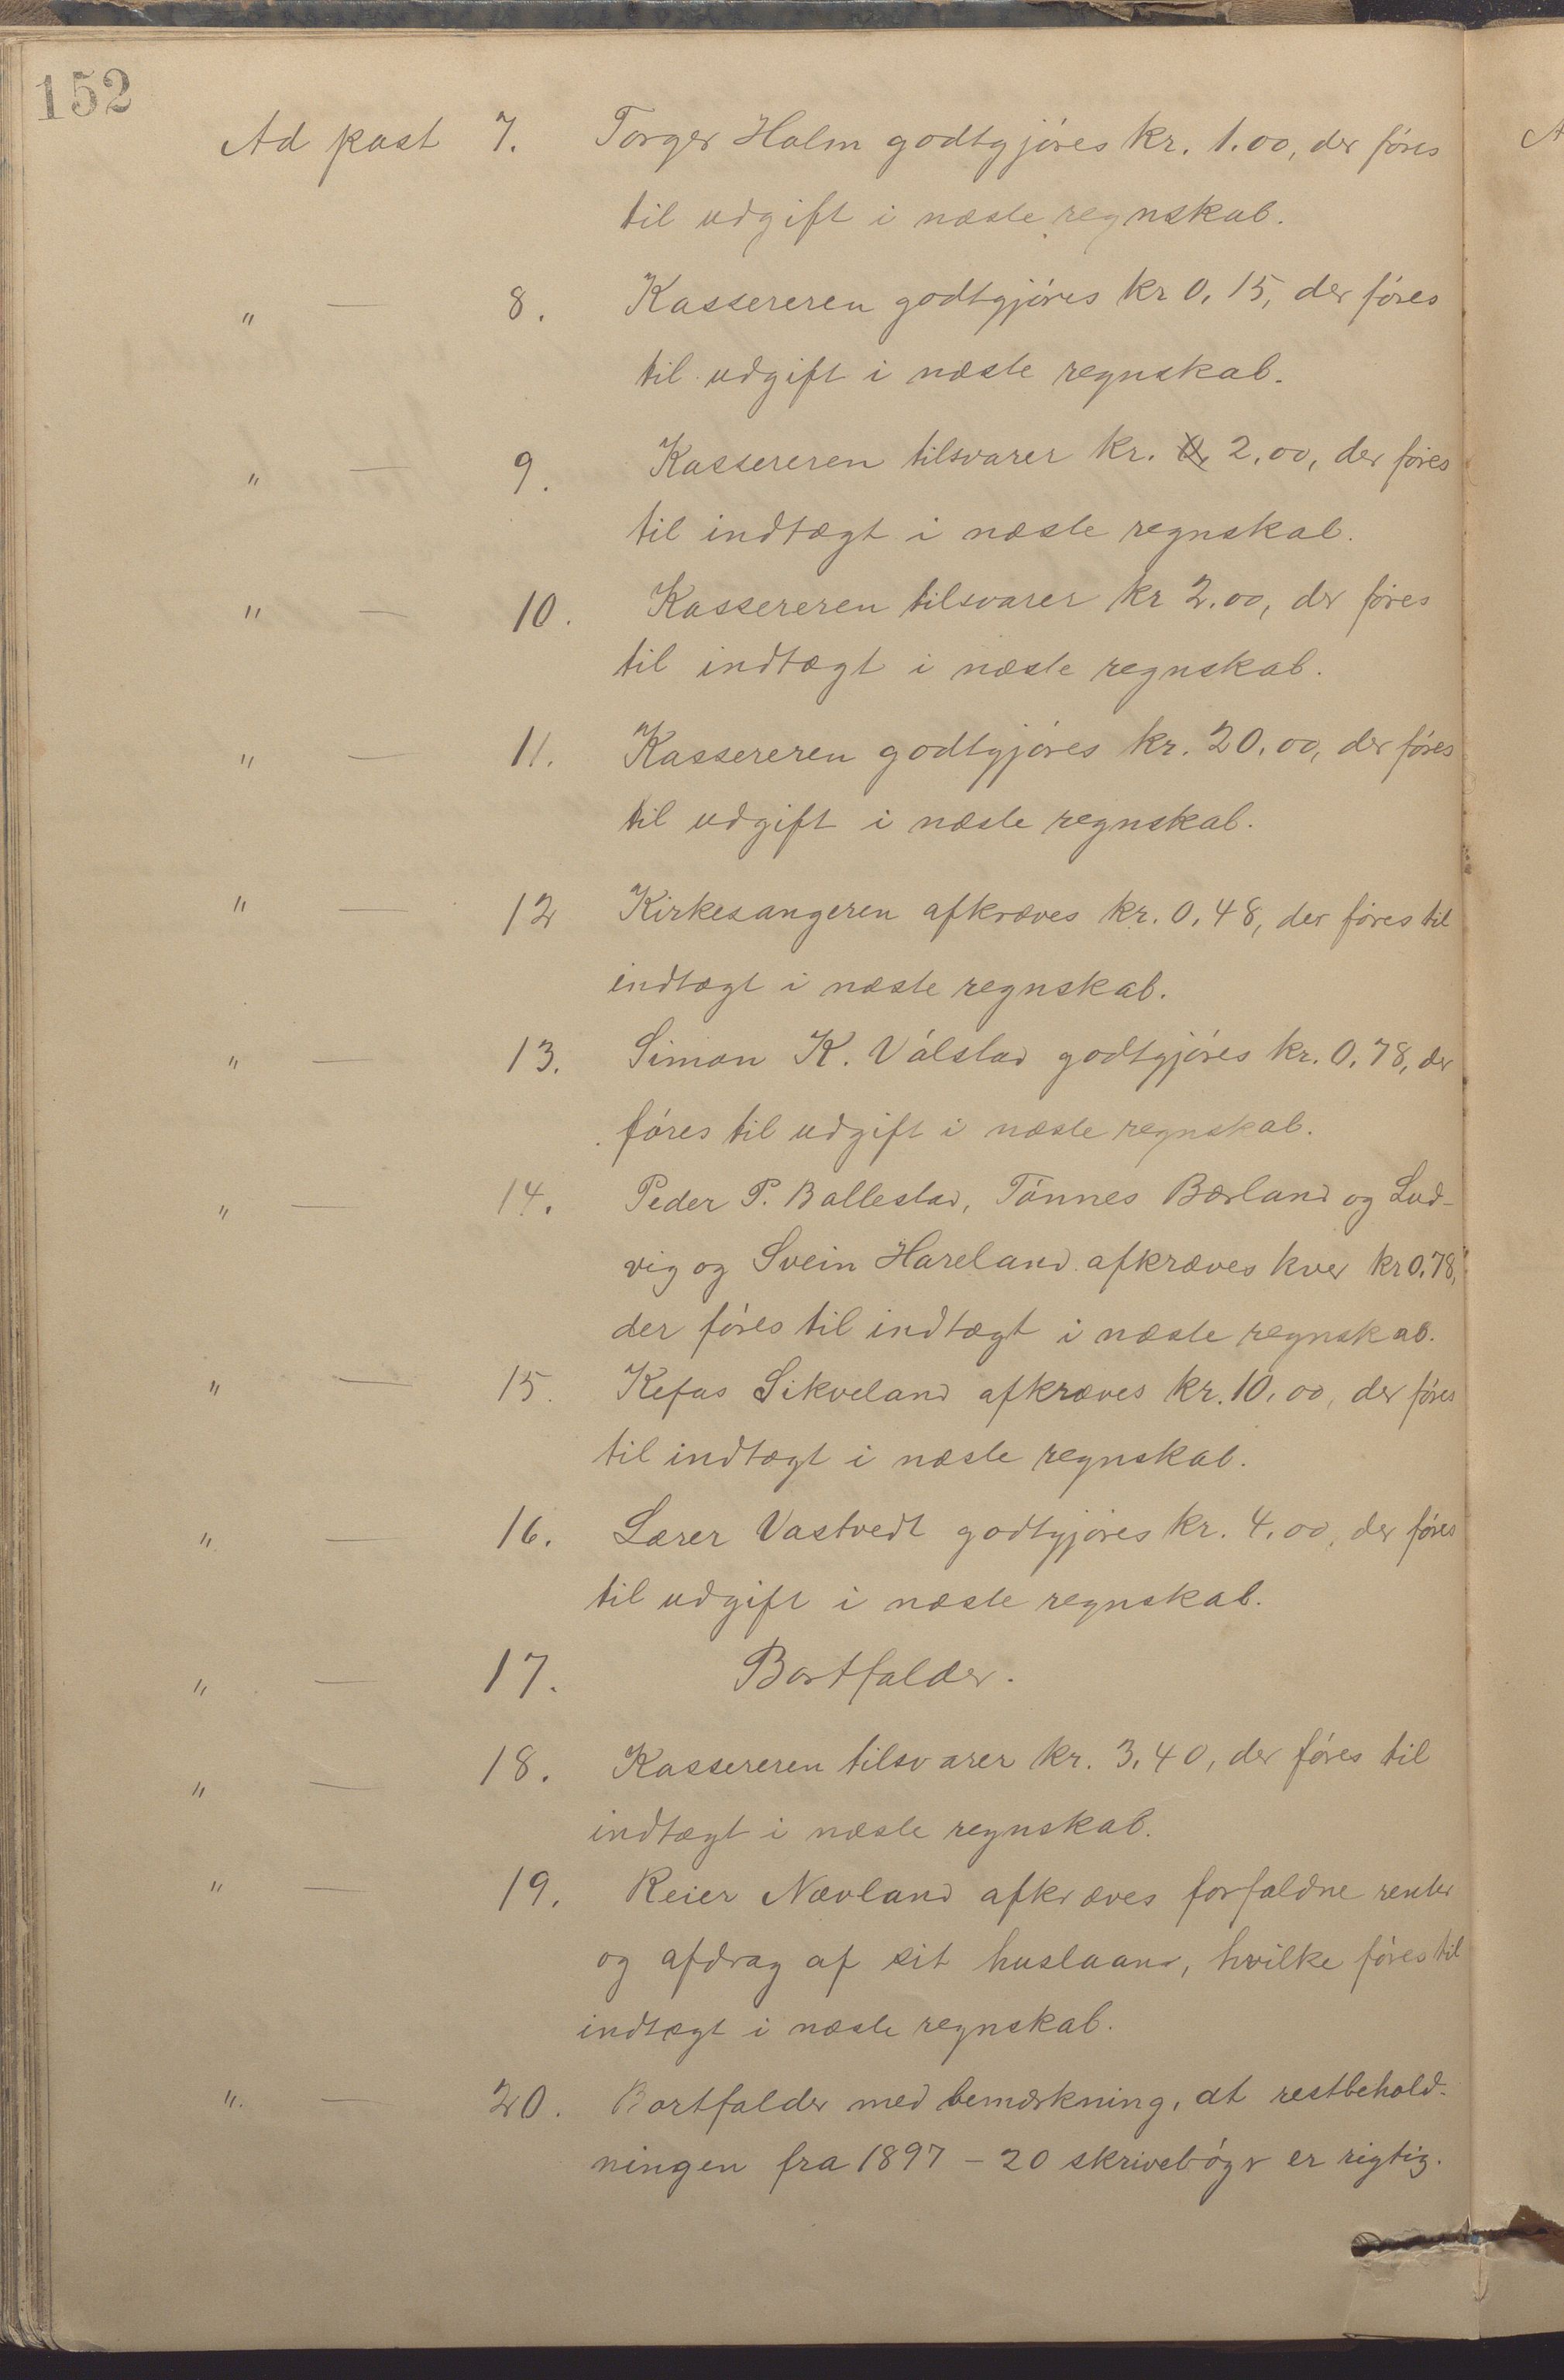 152
Ad post 7. Torger Holm godtgjóres kr. 1.00, der fóres
til udgift i næste regnskab.
" — 8. Kassereren godtgjóres kr 0,15, der fóres
til udgift i næste regnskab.
" — 9. Kassereren tilsvarer kr. 2,00, der fóres
til indtægt i næste regnskab.
" — 10. Kassereren tilsvarer kr 2.00, der fóres
til indtægt i næste regnskab.
" — 11. Kassereren godtgjóres kr. 20,00, der fóres
til udgift i næste regnskab.
" — 12 Kirkesangeren afkræves kr. 0,48, der fóres til
indtægt i næste regnskab.
" — 13. Simon K. Válstad godtgjóres kr. 0,78, der
fóres til udgift i næste regnskab.
" — 14. Peder P. Ballestad, Tónnes Bærland og Lud-
vig og Svein Hareland afkræves hver kr 0,78,
der fóres til indtægt i næste regnskab.
" — 15. Kefas Sikveland afkræves kr. 10,00, der fóres
til indtægt i næste regnskab.
" — 16. Lærer Vastvedt godtgjóres kr. 4,00, der fóres
til udgift i næste regnskab.
" — 17. Bortfalder.
" — 18. Kassereren tilsvarer kr. 3,40, der fóres til
indtægt i næste regnskab.
" — 19. Reier Nævland afkræves forfaldne renter
og afdrag af sit huslaan, hvilke fóres til
indtægt i næste regnskab.
" — 20. Bortfalder med bemærkning, at restbehold-
ningen fra 1897 – 20 skrivebóger er rigtig.